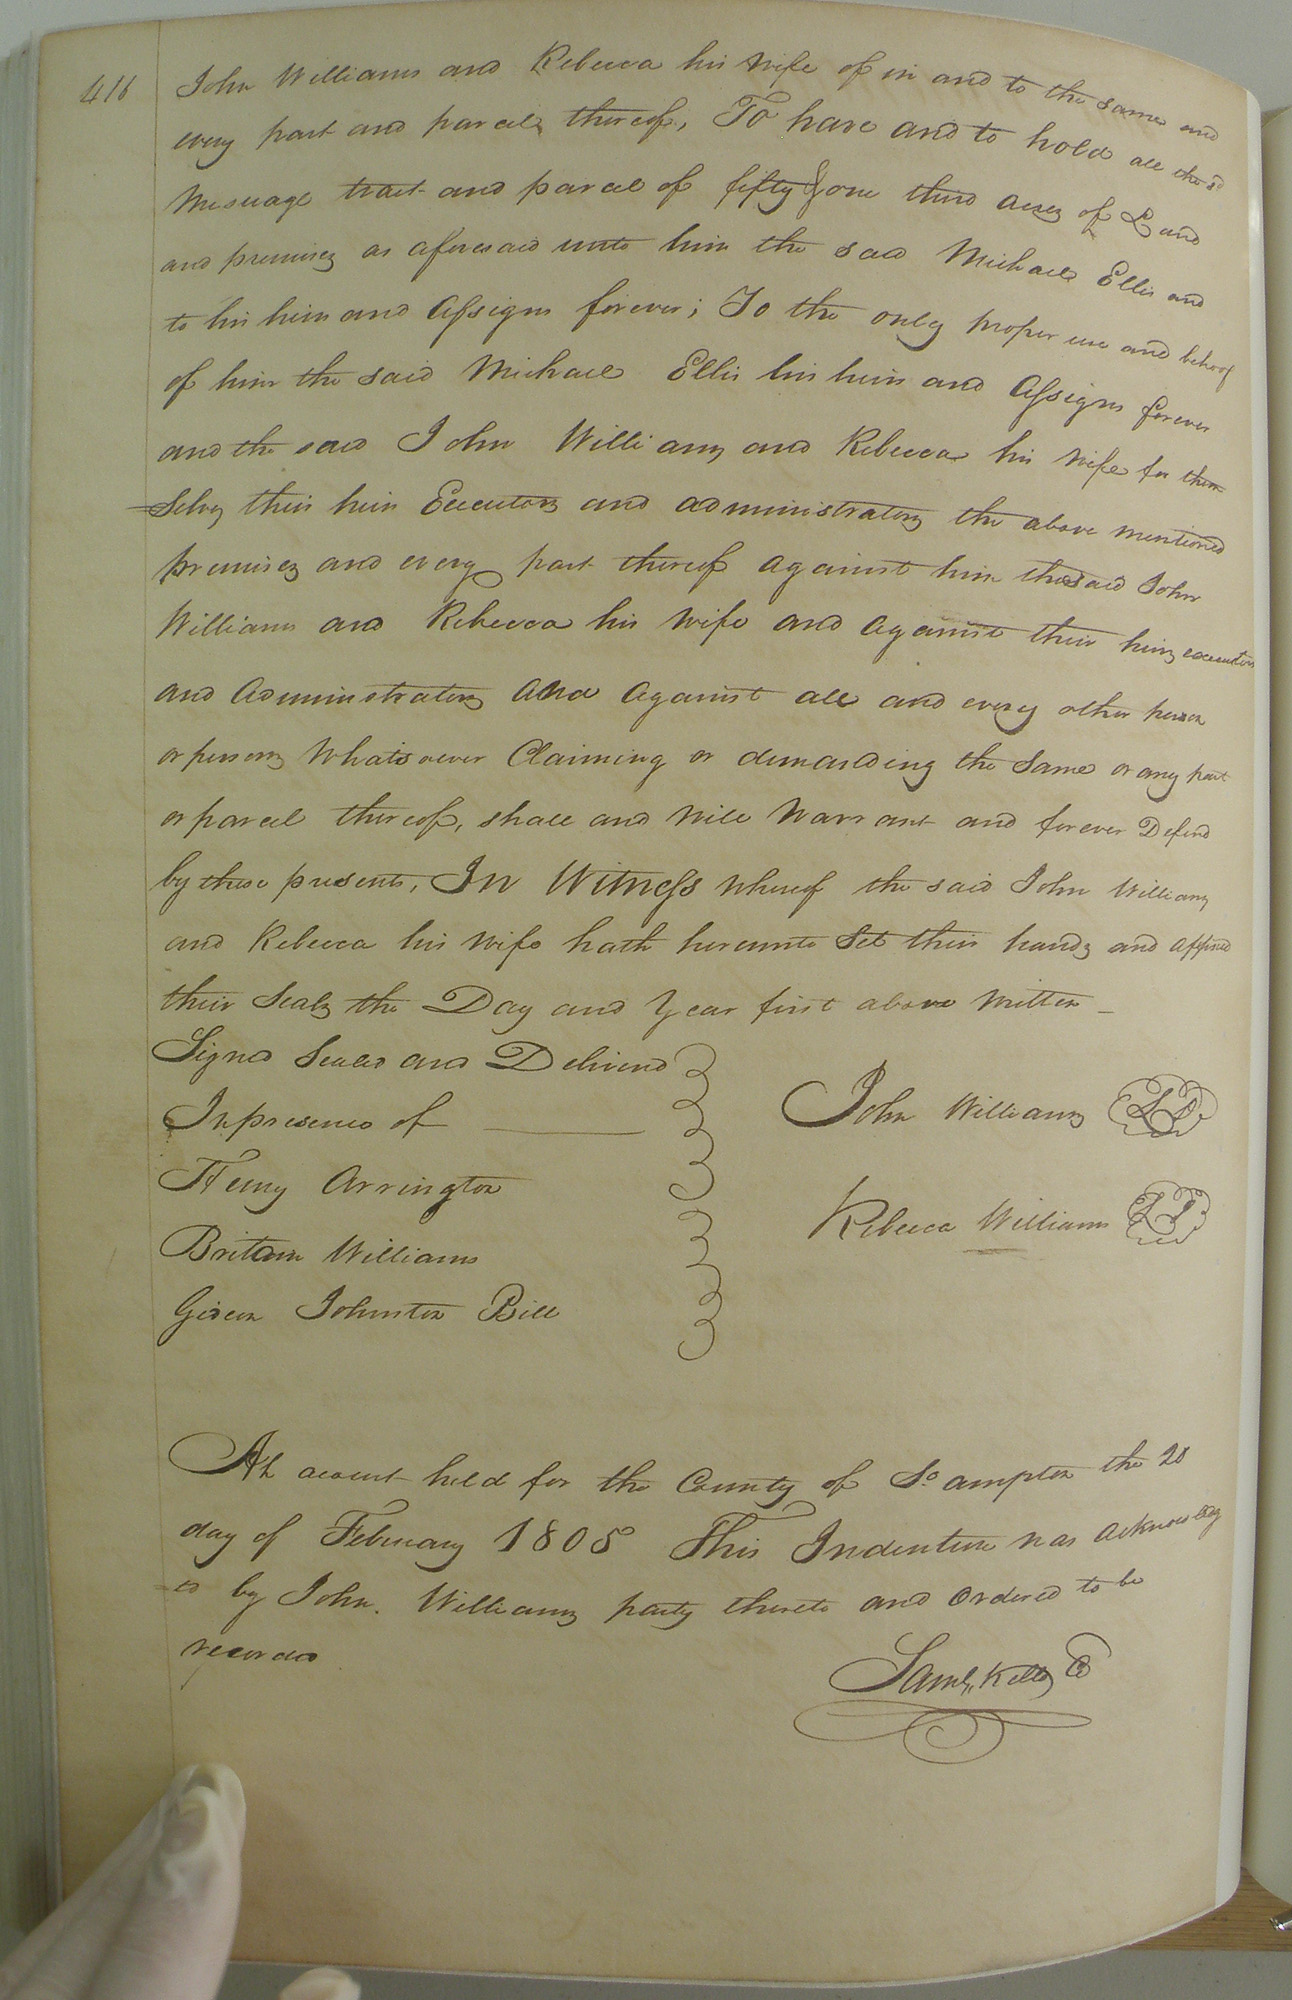 416
John Williams and Rebecca his wife of in and to the same and
every part and parcel thereof, To have and to hold all the sd
Messuage tract and parcel of fifty & one third acres of Land
and premises as aforesaid unto him the said Michael Ellis and
to his heirs and Assigns forever; To the only proper use and behoof
of him the said Michael Ellis his heirs and Assigns forever
and the said John Williams and Rebecca his wife for them
Selves their heirs Executors and administrators the above mentioned
premises and every part thereof against him the said John
Williams and Rebecca his wife and against their heirs executors
and Administrators And against all and every other person
or persons Whatsoever Claiming or demanding the same or any part
or parcel thereof, shall and will Warrant and forever Defend
by these presents, In Witness whereof the said John Williams
and Rebecca his wife hath hereunto Set their hands and affixed
their Seals the Day and Year first above written
Signed Sealed and Deliverd
In presence of
Henry Arrington
Britain Williams
Gideon Johnston Bill
John Williams LS
Rebecca Williams LS
At acourt held for the County of So ampton the 20
day of February 1805 This Indenture was acknowledg
ed by John Williams party thereto and Ordered to be
recorded
Saml Kello C